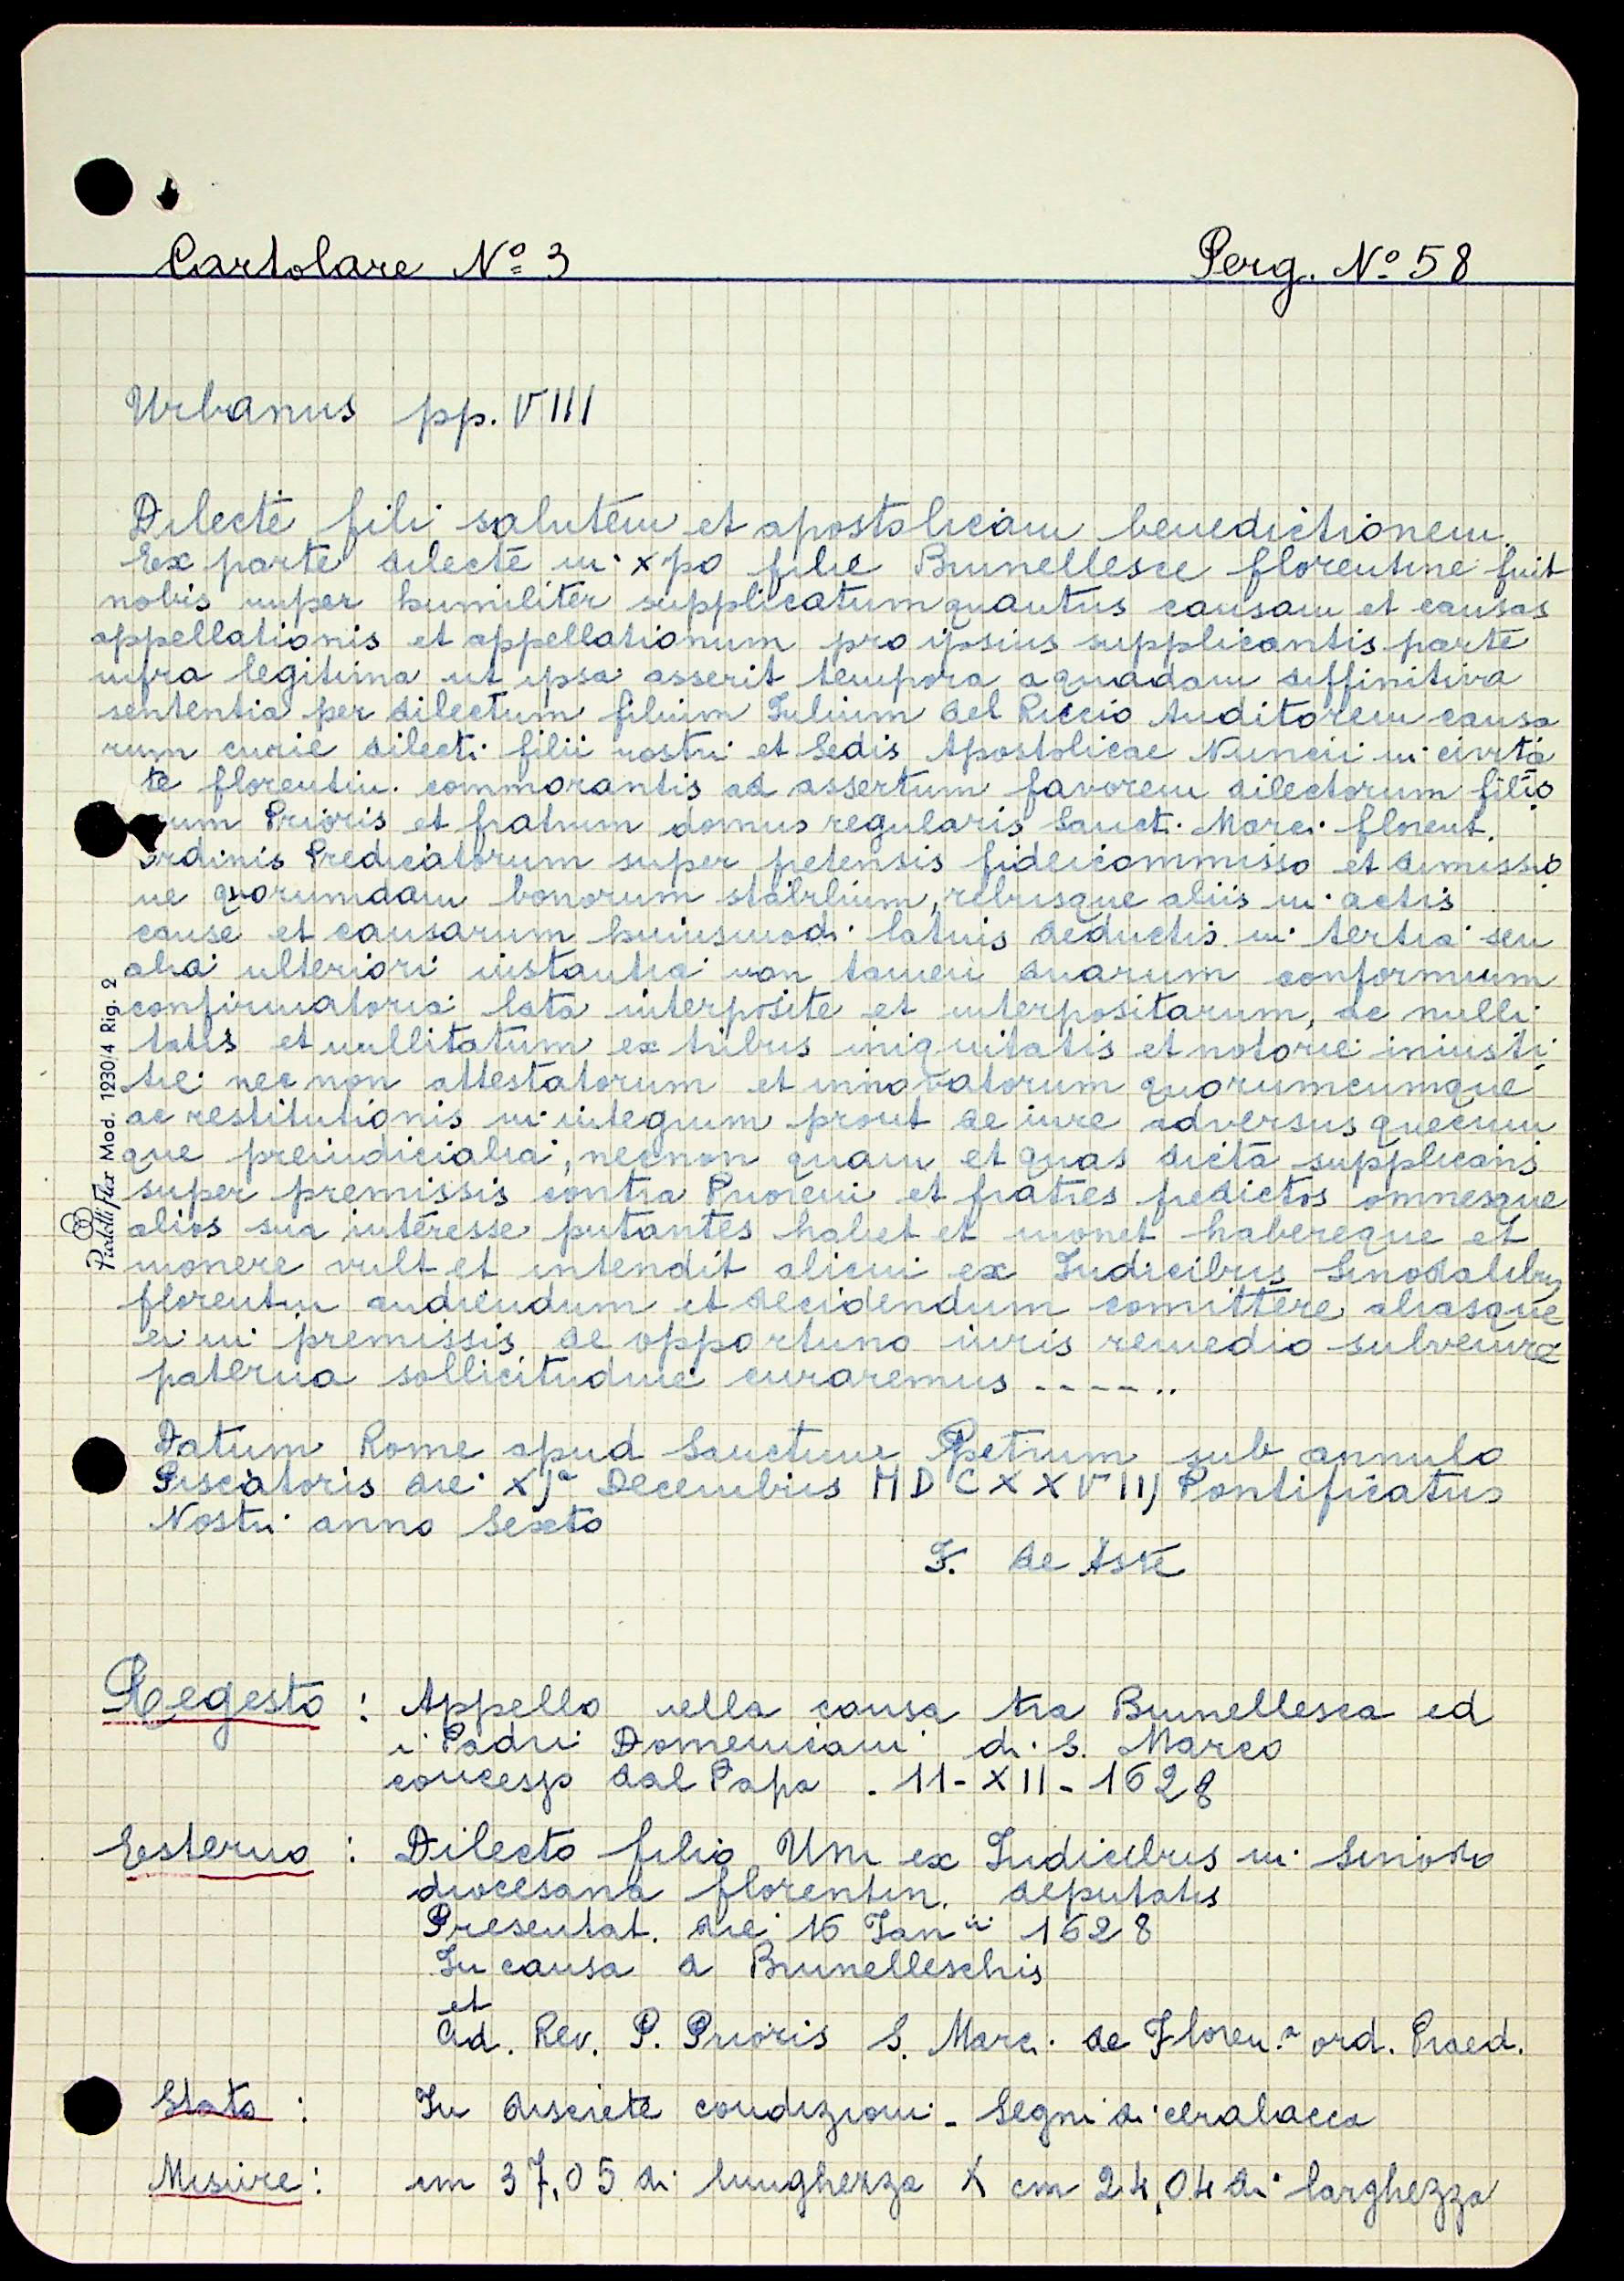 Cartolare Nº 3 Perg. Nº 58
Urbanus pp. VIII
Dilecte fili salutem et apostolicam benedictionem.
Ex parte dilecte in xpo filie Brunellesce florentine fuit
nobis nuper humiliter supplicatum quatus causam et causas
appellationis et appellationum pro ipsius supplicantis parte
infra legitima ut ipsa asserit tempora a quadam diffinitiva
sententia per dilectum filium Iulium del Riccio Auditorem causa
rum curie dilecti filii nostri et Sedis Apostolicae Nuncii in civita
te florentin. commorantis ad assertum favorem dilectorum filio
rum Prioris et fratrum domus regularis Sancti Marci florent.
Ordinis Predicatorum super petensis fideicommisso et dimissio
ne quorumdam bonorum stabilium, rebusque aliis in actis
cause et causarum huiusmodi latius deductis in tertia seu
alia ulteriori instantia non tamen duarum conformium
confirmatoria lata interposite et interpositarum, ac nulli
tatis et nullitatum ex tribus iniquitatis et notorie iniusti
tie necnon attestatorum et innovatorum quorumcumque
ac restitutionis in integrum prout de iure adversus quecum
que preiudicialia, necnon quam et quas dicta supplicans
super premissis contra Priorem et fratres predictos omnesque
alios sua intéresse putantes habet et monet habereque et
monere vult et intendit alicui ex Iudicibus Sinodalibus
florentin audiendum et decidendum comittere aliasque
ei in premissis de opportuno iuris remedio subvenire
paterna sollicitudine curaremus - - - - ..
Datum Rome apud Sanctum Petrum sub annulo
Piscatoris die XJa Decembris MDCXXVIIJ Pontificatus
Nostri anno Sexto
F. de Aste
Regesto : Appello nella causa tra Brunellesca ed
i Padri Domenicani di S. Marco
concesso dal Papa . 11-XII-1628
Esterno : Dilecto filio Uni ex Iudicibus in Sinodo
diocesana florentin. deputatis
Presentat. die 16 Ianii 1628
In causa d Brunelleschis
et
Ad. Rev. P. Prioris S. Marci de Floren.a ord. Praed.
Stato : In discrete condizioni - Segni di ceralacca
Misure : cm 37,05 di lunghezza X cm 24,04 di larghezza
PratelliFlex Mod. 1230/4 Rig. 2